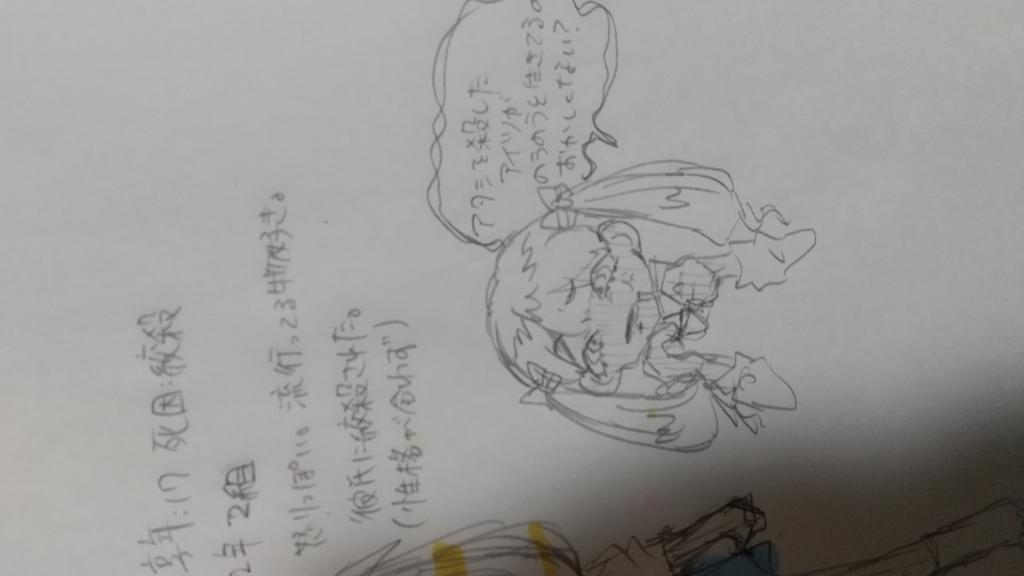 アタシを殺した
アイツが
のうのうと生きてるの
おかしくてない?
享年:17 死因:絞殺
2年2組
怒りっぽい。流行ってる物好き。
彼氏に絞殺された。
(性格が合わず)